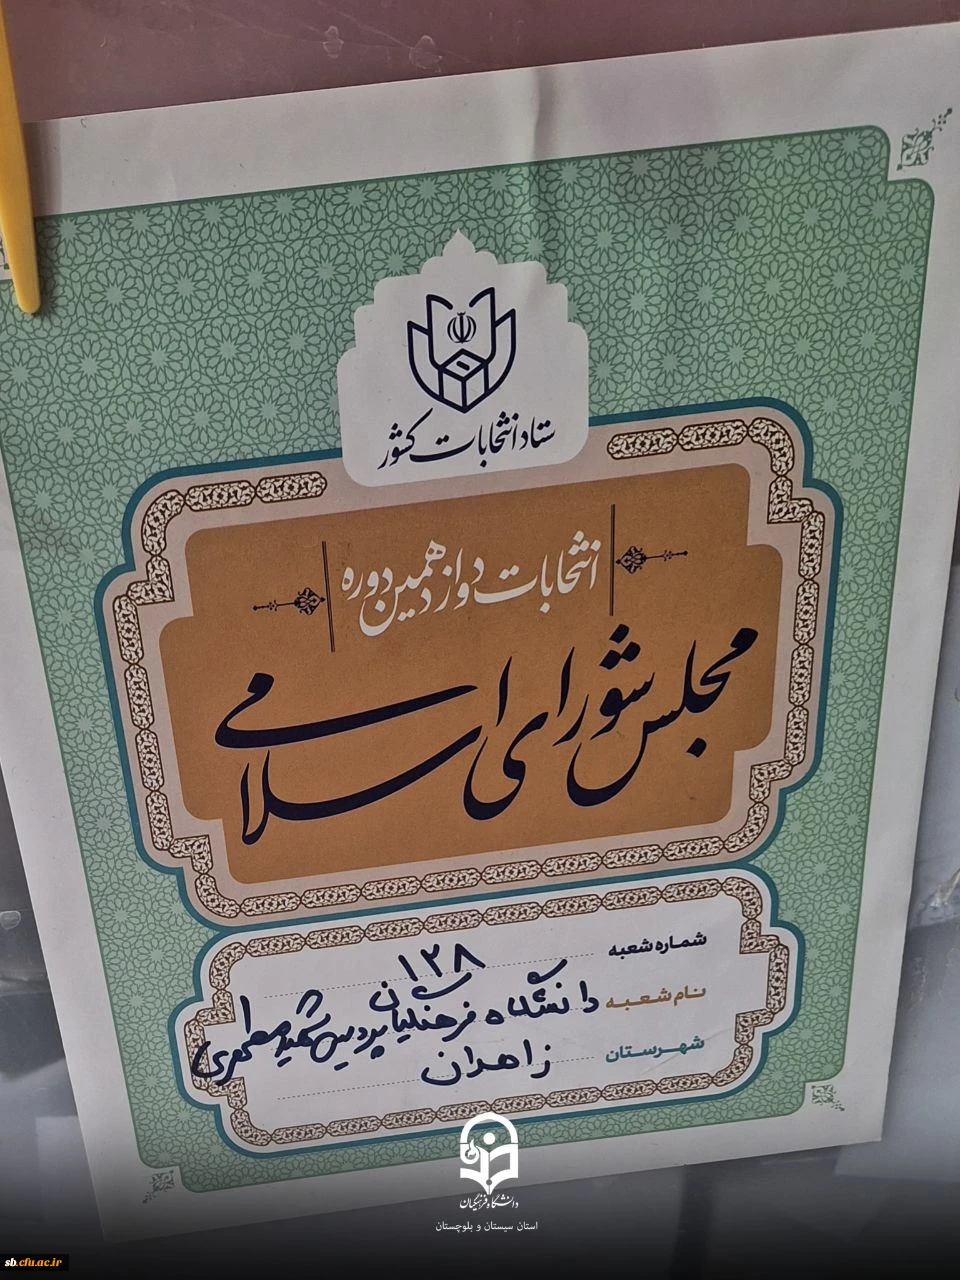 ستاد انتخابات کشور
انتخابات دوازدهمین دوره
مجلس شورای اسلامی
شماره شعبه ۱۲۸
نام شعبه دانشگاه فرهنگیان پردیس شهید مطهری
شهرستان زاهدان
دانشگاه فرهنگیان
استان سیستان و بلوچستان
sb.cfu.ac.ir